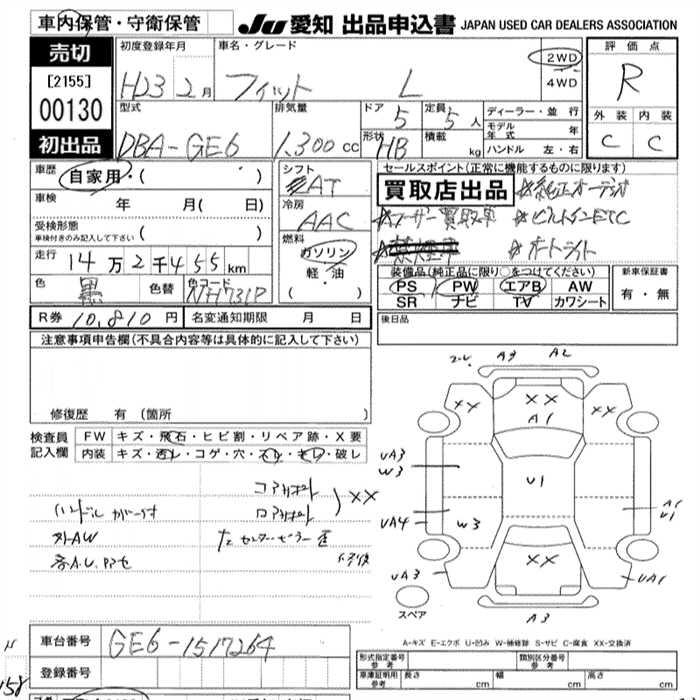 車内保管・守衛保管
JU 愛知 出品申込書 JAPAN USED CAR DEALERS ASSOCIATION
売切
[2155]
00130
初出品
初度登録年月
H23 2月
車名・グレード
フィット L
2WD
4WD
評価点
R
外装 内装
C C
型式
DBA-GE6
排気量
1,300cc
ドア 5
形状 HB
定員 5人
積載 kg
ディーラー・並行
モデル年式 年
ハンドル 左・右
車歴 自家用・( )
車検 年 月( 日)
受検形態
車検付きのみ記入して下さい ( )
走行 14万2千455km
色 黒 色替 色コード NH731P
シフト
AT
冷房
AAC
燃料
ガソリン
軽・油
( )
セールスポイント(正常に機能するものに限ります)
買取店出品
☆純正オーディオ
☆ユーザー買取車 ☆ビルトインETC
☆禁煙車 ☆オートライト
装備品(純正品に限り○をつけてください)
PS PW エアB AW
SR ナビ TV カワシート
新車保証書
有・無
R券 10,810円 名変通知期限 月 日
後日品
注意事項申告欄(不具合内容等は具体的に記入して下さい)
修復歴 有 (箇所 )
検査員記入欄
FW キズ・飛石・ヒビ割・リペア跡・X要
内装 キズ・汚レ・コゲ・穴・スレ・キレ・破レ
コアサポート
ロアサポート ) XX
ハンドル ガリ付
外AW
右センターピラー 歪
修復
A3 A2
XX XX XX
A1
UA3
W3
U1
A1
U1
UA4
W3
XX
UA3
UA1
A3
スペア
A-キズ E-エクボ U-凹み W-補修跡 S-サビ C-腐食 XX-交換済
車台番号 GE6-1517264
登録番号
形式指定番号 参考
類別区分番号 参考
車庫証明用 参考
長さ cm 幅 cm 高さ cm
158